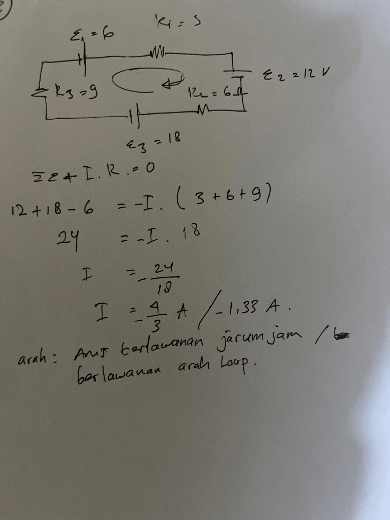 ε₁ = 6
R₁ = 3
R₃ = 9
ε₂ = 12 V
R₂ = 6 Ω
ε₃ = 18
Σ ε + I . R . = 0
12 + 18 - 6 = -I . ( 3 + 6 + 9 )
24 = -I . 18
I = - 24/18
I = - 4/3 A / -1,33 A .
arah : Arus berlawanan jarum jam /
berlawanan arah Loop .